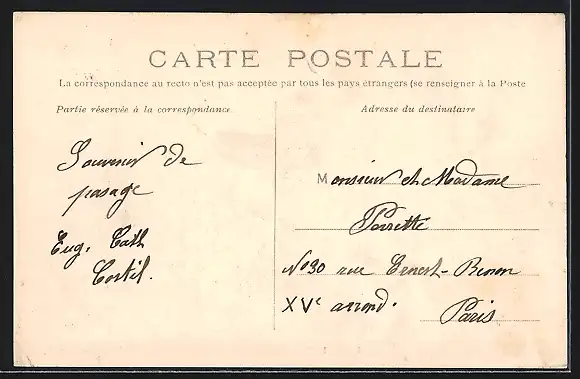 CARTE POSTALE
La correspondance au recto n'est pas acceptée par tous les pays étrangers (se renseigner à la Poste
Partie réservée à la correspondance
Adresse du destinataire
Souvenir de
pasage
Eug. Cath
Costil.
Monsieur et Madame
Perrette
No 30 rue Ernest-Renan
XVe arrond.
Paris